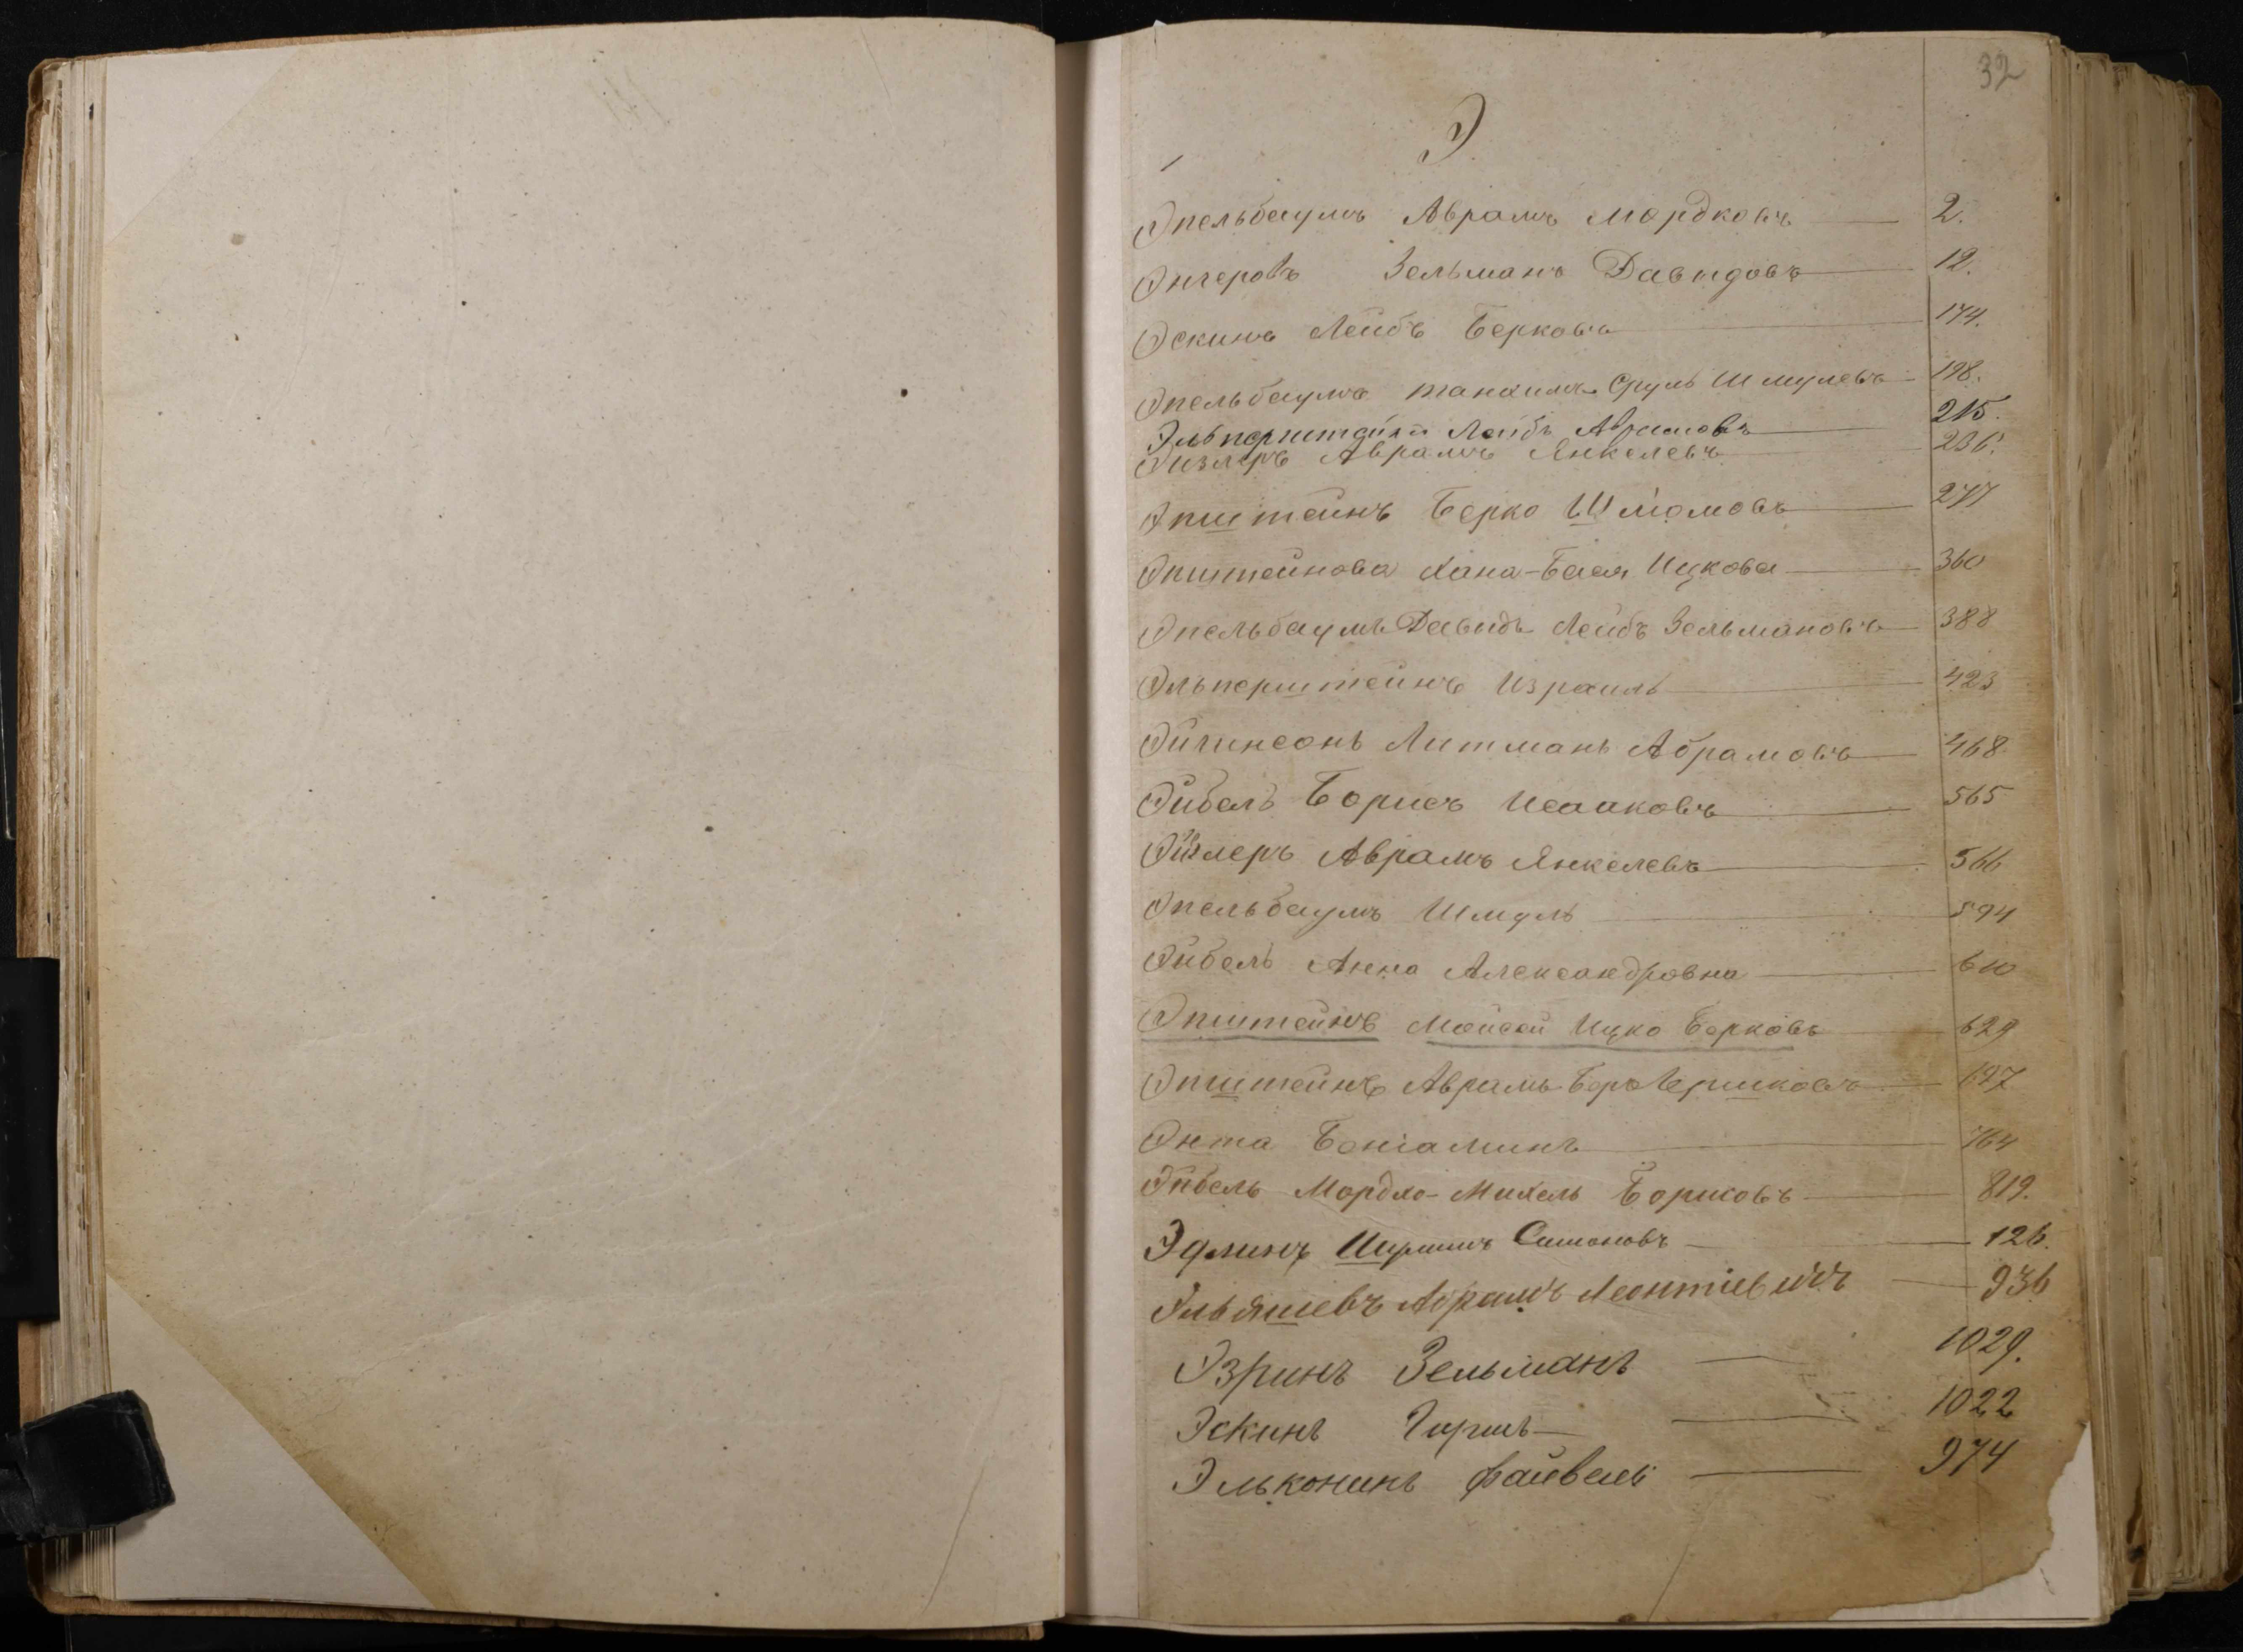 32
Э.
Эпельбаумъ Абрамъ Мордковъ 2.
Энгеровъ Зельманъ Давидовъ 12.
Эскинъ Лейбъ Берковъ 174.
Эпельбаумъ Танхимъ Сруль Шмулевъ 198.
Эльперштейнъ Лейбъ Абрамовъ 215.
Эйзлеръ Абрамъ Янкелевъ 236.
Эпштейнъ Берко Шліомовъ 277
Эпштейнова Хана-Бася Ицкова 360
Эпельбаумъ Давидъ Лейбъ Зельмановъ 388
Эльперштейнъ Израиль 423
Эйгинсонъ Литманъ Абрамовъ 468
Эйбель Борисъ Исааковъ 565
Эйзлеръ Абрамъ Янкелевъ 566
Эпельбаумъ Шмуль 594
Эйбель Анна Александровна 610
Эпштейнъ Мойсей Ицко Берковъ 629
Эпштейнъ Абрамъ Беръ Гершковъ 697
Энта Беніаминъ 764
Эйбель Мордхо-Михель Борисовъ 819.
Эдлинъ Симоновъ 126.
Эльяшевъ Абрамъ Леонтіевичъ 936
Эзринъ Зельманъ 1029.
Эскинъ Гиршъ 1022
Эльконинъ Файвель 974